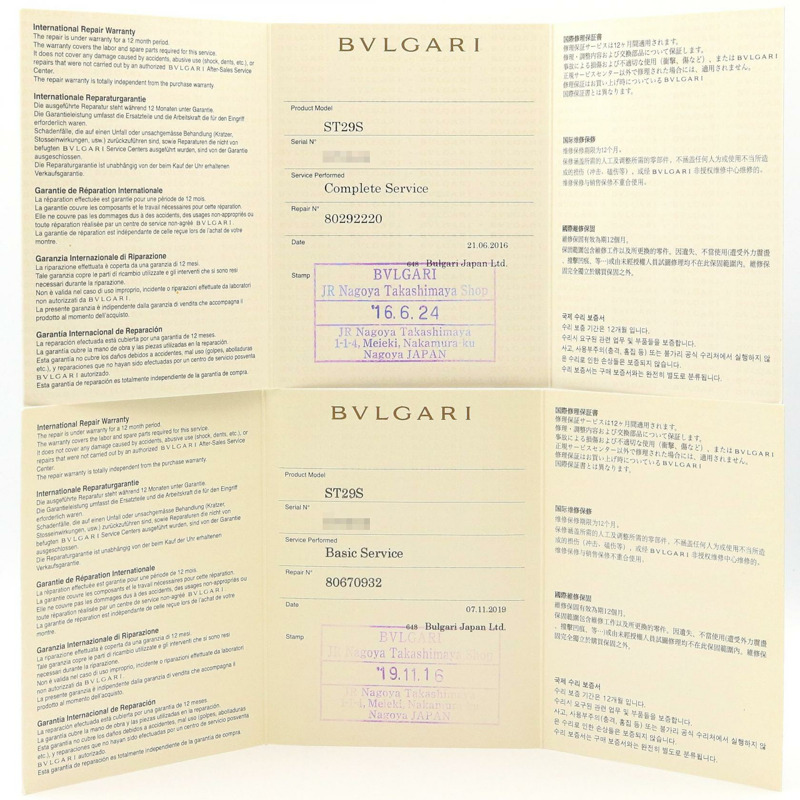 International Repair Warranty
The repair is under warranty for a 12 month period.
The warranty covers the labor and spare parts required for this service.
It does not cover any damage caused by accidents, abusive use (shock, dents, etc.), or
repairs that were not carried out by an authorized BVLGARI After-Sales Service
Center.
The repair warranty is totally independent from the purchase warranty
Internationale Reparaturgarantie
Die ausgeführte Reparatur steht während 12 Monaten unter Garantie.
Die Garantieleistung umfasst die Ersatzteile und die Arbeitskraft die für den Eingriff
erforderlich waren.
Schadenfälle, die auf einen Unfall oder unsachgemässe Behandlung (Kratzer,
Stosseinwirkungen, usw.) zurückzuführen sind, sowie Reparaturen die nicht von
befugten BVLGARI Service Centers ausgeführt wurden, sind von der Garantie
ausgeschlossen.
Die Reparaturgarantie ist unabhängig von der beim Kauf der Uhr erhaltenen
Verkaufsgarantie.
Garantie de Réparation Internationale
La réparation effectuée est garantie pour une période de 12 mois.
La garantie couvre les composants et le travail nécessaires pour cette réparation.
Elle ne couvre pas les dommages dus à des accidents, des usages non-appropriés ou
toute réparation réalisée par un centre de service non-agréé BVLGARI.
La garantie de réparation est indépendante de celle reçue lors de l'achat de votre
montre.
Garanzia Internazionale di Riparazione
La riparazione effettuata è coperta da una garanzia di 12 mesi.
Tale garanzia copre le parti di ricambio utilizzate e gli interventi che si sono resi
necessari durante la riparazione.
Non è valida nel caso di uso improprio, incidente o riparazioni effettuate da laboratori
non autorizzati da BVLGARI.
La presente garanzia è indipendente dalla garanzia di vendita che accompagna il
prodotto al momento dell'acquisto.
Garantía Internacional de Reparación
La reparación efectuada está cubierta por una garantía de 12 meses.
La garantía cubre la mano de obra y las piezas utilizadas en la reparación.
Esta garantía no cubre los daños debidos a accidentes, mal uso (golpes, abolladuras
etc.), y reparaciones que no hayan sido efectuadas por un centro de servicio posventa
BVLGARI autorizado.
Esta garantía de reparación es totalmente independiente de la garantía de compra.
BVLGARI
Product Model
ST29S
Serial N°
Service Performed
Complete Service
Repair N°
80292220
Date
21.06.2016
648 Bulgari Japan Ltd.
Stamp
BVLGARI
JR Nagoya Takashimaya Shop
'16.6.24
JR Nagoya Takashimaya
1-1-4, Meieki, Nakamura-ku
Nagoya JAPAN
国際修理保証書
修理保証サービスは12ヶ月間適用されます。
修理・調整内容および交換部品について保証します。
事故による損傷および不適切な使用（衝撃、傷など）、またはBVLGARI
正規サービスセンター以外で修理された場合には、適用されません。
修理保証はお買い上げ時についているBVLGARI
国際保証書とは異なります。
国际维修保修
维修保修期限为12个月。
国際維修保固
維修保固有效為期12個月。
국제 수리 보증서
수리 보증 기간은 12개월 입니다.
수리시 요구된 관련 업무 및 부품들을 보증합니다.
사고, 사용부주의(충격, 흠집 등) 또는 불가리 공식 수리처에서 실행하지 않
은 수리로 인한 손상들은 보증되지 않습니다.
수리 보증서는 구매 보증서와는 완전히 별도로 분류됩니다.
International Repair Warranty
The repair is under warranty for a 12 month period.
The warranty covers the labor and spare parts required for this service.
It does not cover any damage caused by accidents, abusive use (shock, dents, etc.), or
repairs that were not carried out by an authorized BVLGARI After-Sales Service
Center.
The repair warranty is totally independent from the purchase warranty
Internationale Reparaturgarantie
Die ausgeführte Reparatur steht während 12 Monaten unter Garantie.
Die Garantieleistung umfasst die Ersatzteile und die Arbeitskraft die für den Eingriff
erforderlich waren.
Schadenfälle, die auf einen Unfall oder unsachgemässe Behandlung (Kratzer,
Stosseinwirkungen, usw.) zurückzuführen sind, sowie Reparaturen die nicht von
befugten BVLGARI Service Centers ausgeführt wurden, sind von der Garantie
ausgeschlossen.
Die Reparaturgarantie ist unabhängig von der beim Kauf der Uhr erhaltenen
Verkaufsgarantie.
Garantie de Réparation Internationale
La réparation effectuée est garantie pour une période de 12 mois.
La garantie couvre les composants et le travail nécessaires pour cette réparation.
Elle ne couvre pas les dommages dus à des accidents, des usages non-appropriés ou
toute réparation réalisée par un centre de service non-agréé BVLGARI.
La garantie de réparation est indépendante de celle reçue lors de l'achat de votre
montre.
Garanzia Internazionale di Riparazione
La riparazione effettuata è coperta da una garanzia di 12 mesi.
Tale garanzia copre le parti di ricambio utilizzate e gli interventi che si sono resi
necessari durante la riparazione.
Non è valida nel caso di uso improprio, incidente o riparazioni effettuate da laboratori
non autorizzati da BVLGARI.
La presente garanzia è indipendente dalla garanzia di vendita che accompagna il
prodotto al momento dell'acquisto.
Garantía Internacional de Reparación
La reparación efectuada está cubierta por una garantía de 12 meses.
La garantía cubre la mano de obra y las piezas utilizadas en la reparación.
Esta garantía no cubre los daños debidos a accidentes, mal uso (golpes, abolladuras
etc.), y reparaciones que no hayan sido efectuadas por un centro de servicio posventa
BVLGARI autorizado.
Esta garantía de reparación es totalmente independiente de la garantía de compra.
BVLGARI
Product Model
ST29S
Serial N°
Service Performed
Basic Service
Repair N°
80670932
Date
07.11.2019
648 Bulgari Japan Ltd.
Stamp
BVLGARI
JR Nagoya Takashimaya Shop
'19.11.16
JR Nagoya Takashimaya
1-1-4, Meieki, Nakamura-ku
Nagoya JAPAN
国際修理保証書
修理保証サービスは12ヶ月間適用されます。
修理・調整内容および交換部品について保証します。
事故による損傷および不適切な使用（衝撃、傷など）、またはBVLGARI
正規サービスセンター以外で修理された場合には、適用されません。
修理保証はお買い上げ時についているBVLGARI
国際保証書とは異なります。
国际维修保修
维修保修期限为12个月。
國際維修保固
維修保固有效為期12個月。
국제 수리 보증서
수리 보증 기간은 12개월 입니다.
수리시 요구된 관련 업무 및 부품들을 보증합니다.
사고, 사용부주의(충격, 흠집 등) 또는 불가리 공식 수리처에서 실행하지 않
은 수리로 인한 손상들은 보증되지 않습니다.
수리 보증서는 구매 보증서와는 완전히 별도로 분류됩니다.